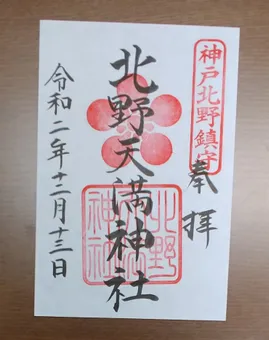 神戸北野鎮守
奉拝
北野天満神社
北野
神社
令和二年十二月十三日